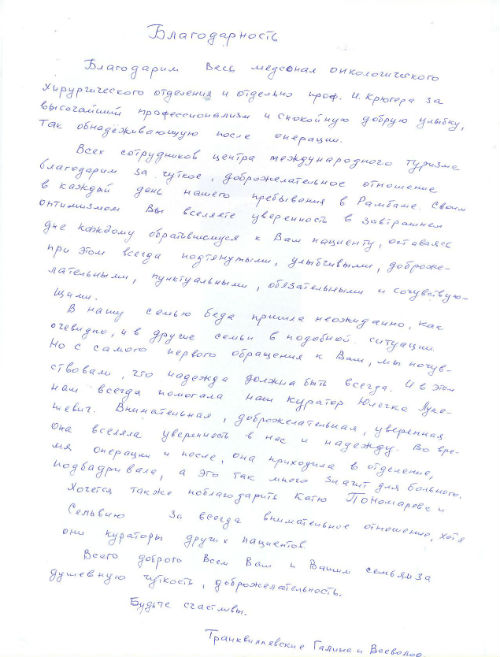 Благодарность
Благодарим весь медсонал онкологического
хирургического отделения и отдельно проф. И. Крюгера за
высочайший профессионализм и спокойную добрую улыбку,
так обнадеживающую после операции.
Всех сотрудников центра международного туризма
благодарим за чуткое, доброжелательное отношение
в каждый день нашего пребывания в Рамбаме. Своим
оптимизмом Вы вселяете уверенность в завтрашнем
дне каждому обратившемуся к Вам пациенту, оставаясь
при этом всегда подтянутыми, улыбчивыми, доброже-
лательными, пунктуальными, обязательными и сочувствую-
щими.
В нашу семью беда пришла неожиданно, как
очевидно, и в другие семьи в подобной ситуации.
Но с самого первого обращения к Вам, мы почув-
ствовали, что надежда должна быть всегда. И в этом
нам всегда помогала наш куратор Юлечка Луке-
шевич. Внимательная, доброжелательная, уверенная
она вселяла уверенность в нас и надежду. Во вре-
мя операции и после, она приходила в отделение,
подбадривала, а это так много значит для больного.
Хочется также поблагодарить Катю Пономареве и
Сельвию за всегда внимательное отношение, хотя
они кураторы других пациентов.
Всего доброго Всем Вам и Вашим семьям за
душевную чуткость, доброжелательность.
Будьте счастливы.
Транквиллевские Галина и Всеволод.